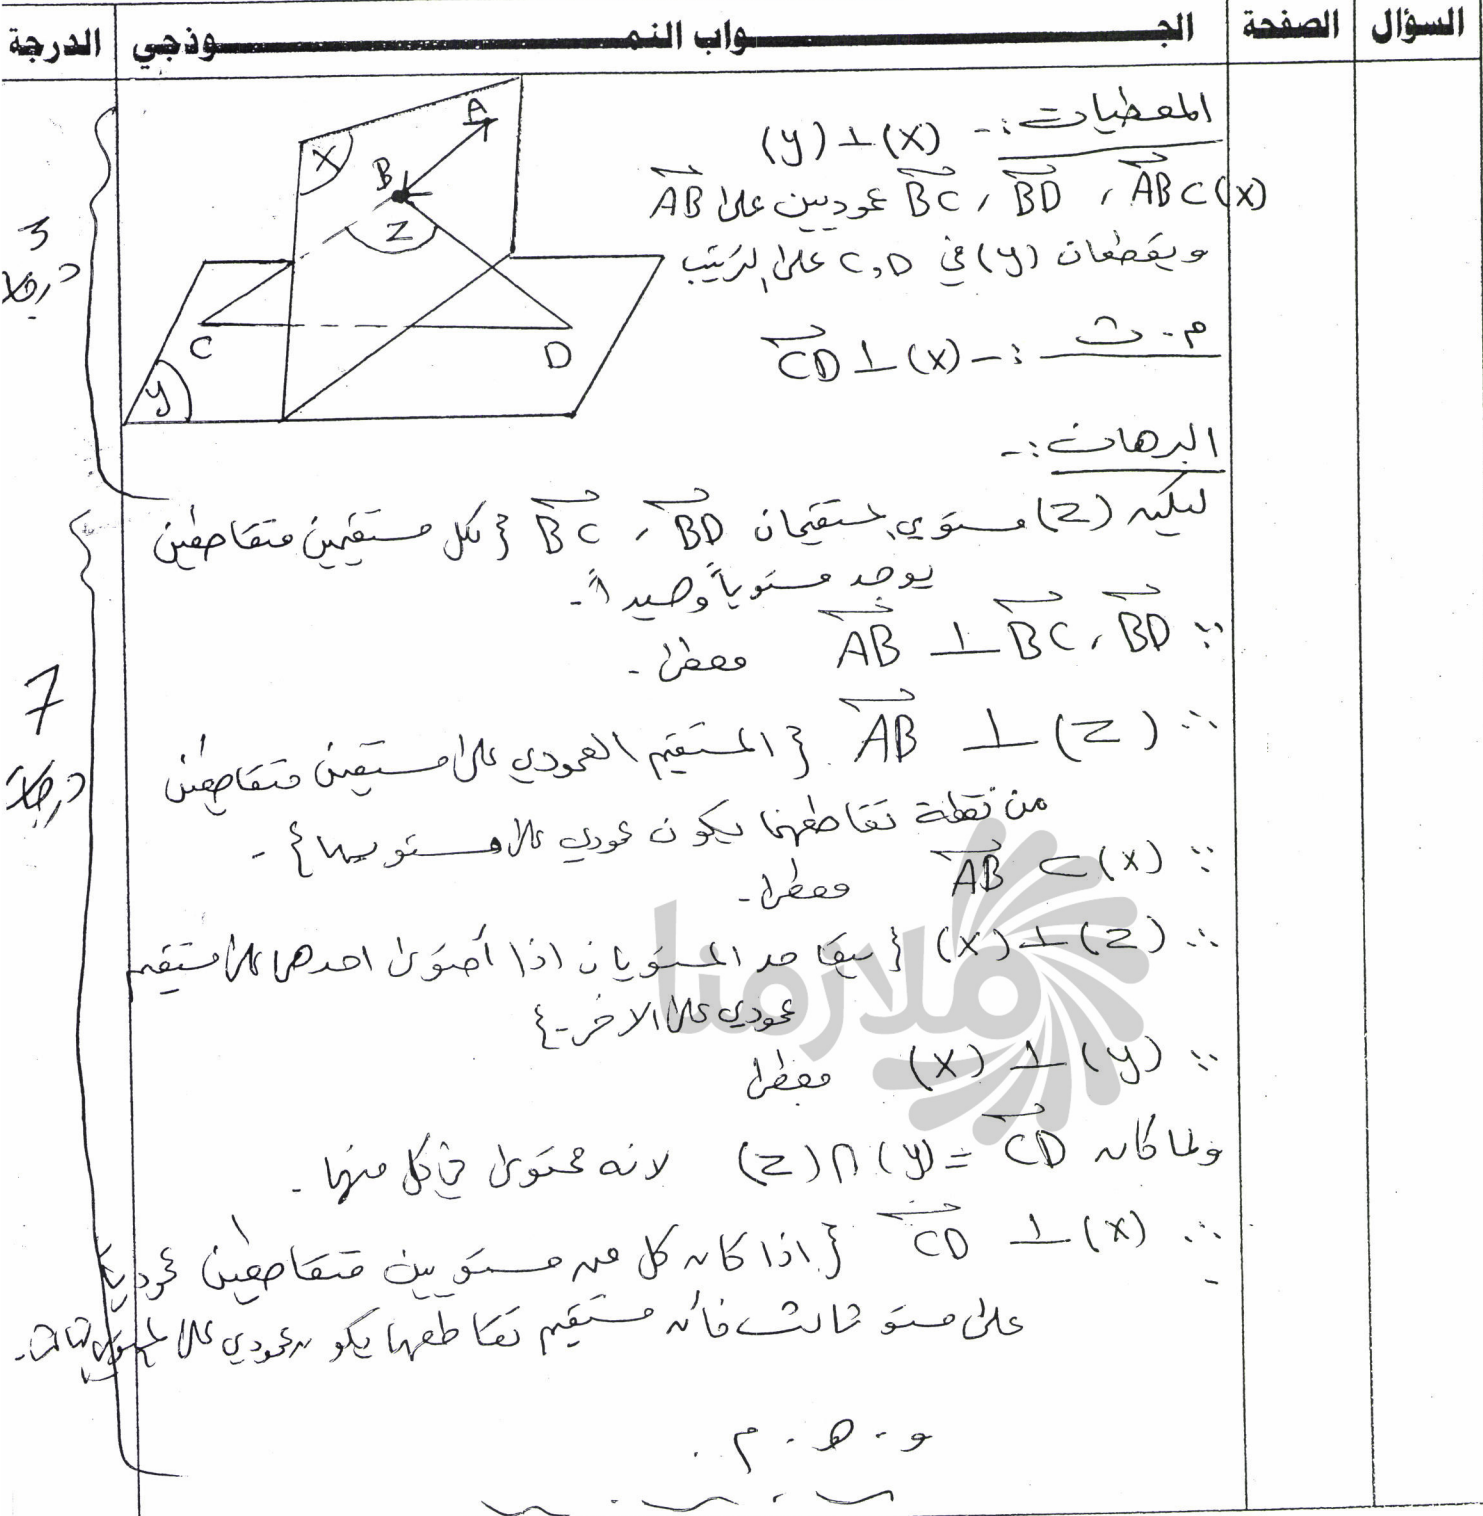 السؤال الصفحة الجـــواب النمـــوذجي الدرجة
المعطيات :- (X) ⊥ (y)
BC ، BD ، AB ⊂ (X) عموديين على AB
ويقطعان (y) في C, D على الترتيب
م. ث :- CD ⊥ (X)
A
X
B
Z
C
D
y
3
درجات
البرهان :-
ليكن (Z) مستوي المستقيمان BC ، BD } لكل مستقيمين متقاطعين
يوجد مستوياً وحيداً -
∵ AB ⊥ BC ، BD معطى -
∴ AB ⊥ (Z) } المستقيم العمودي على مستقيمين متقاطعين
من نقطة تقاطعهما يكون عمودي على مستويهما { -
∵ AB ⊂ (X) معطى -
∴ (X) ⊥ (Z) } يتعامد المستويان اذا أحتوى احدهما على مستقيم
عمودي على الاخر - {
∵ (X) ⊥ (y) معطى
ولما كان CD = (y) ∩ (Z) لانه محتوى في كل منهما -
∴ CD ⊥ (X) } اذا كان كل من مستويين متقاطعين عمودياً
على مستو ثالث فأن مستقيم تقاطعهما يكون عمودي على المستوي الثالث -
و . هـ . م .
7
درجات
ملازمنا